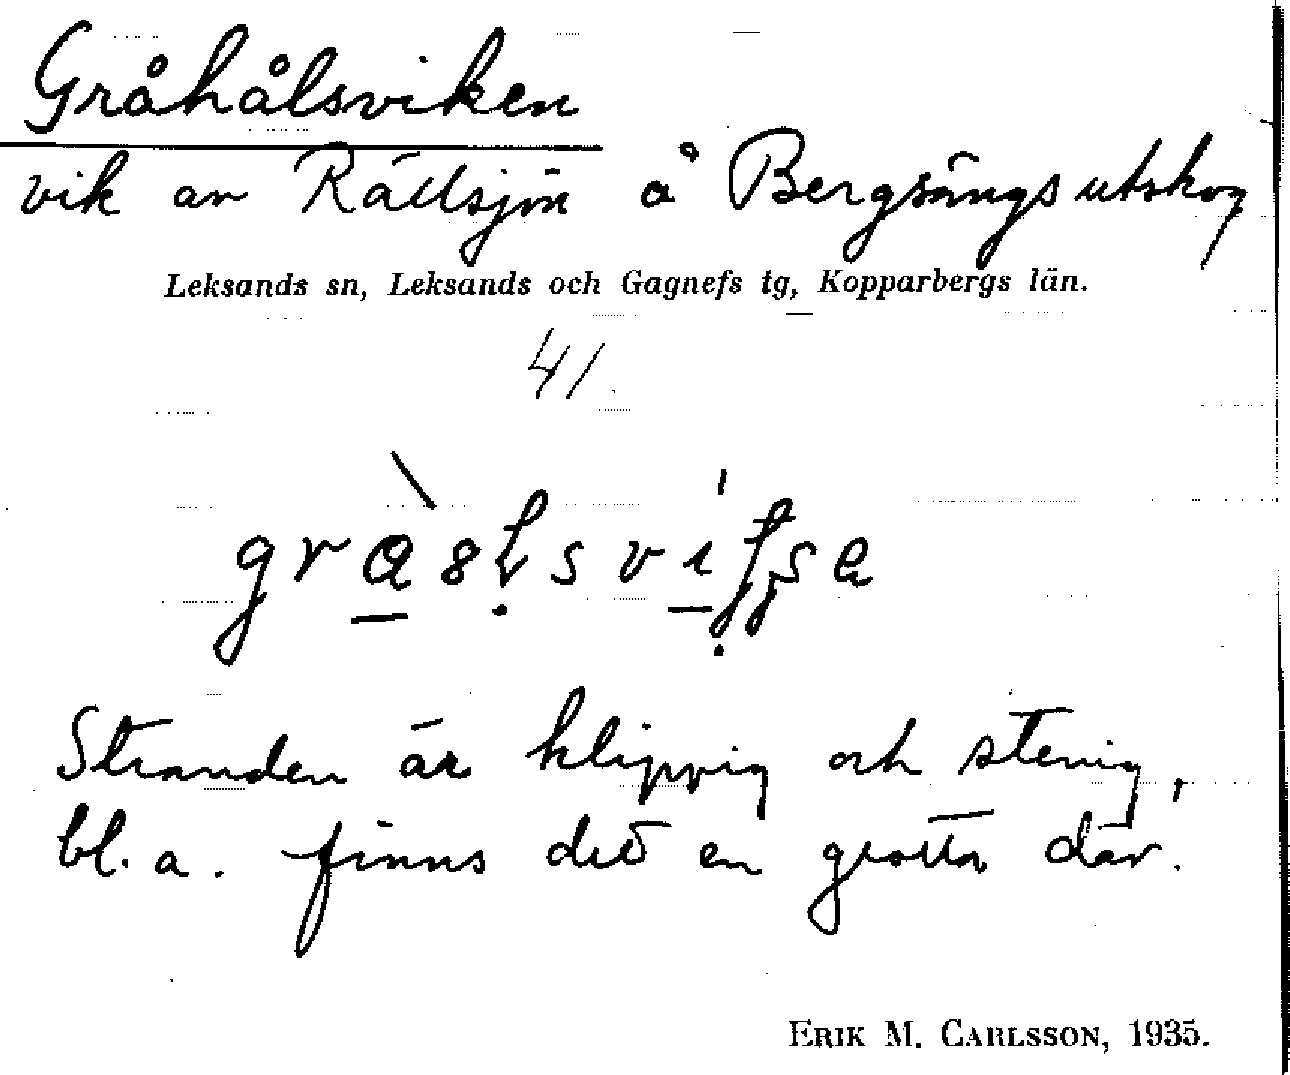 Gråhålsviken
vik av Rällsjön å Bergsängs utskog
Leksands sn, Leksands och Gagnefs tg, Kopparbergs län.
41
Stranden är klippig och stenig,
bl. a. finns det en grotta där.
ERIK M. CARLSSON, 1935.